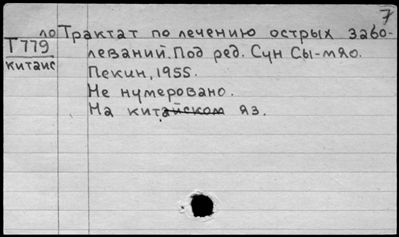 7
ло Трактат по лечению острых забо-
Т779 леваний. Под ред. Сун Сы-мяо.
китаис Пекин, 1955.
Не нумеровано.
На китайском яз.